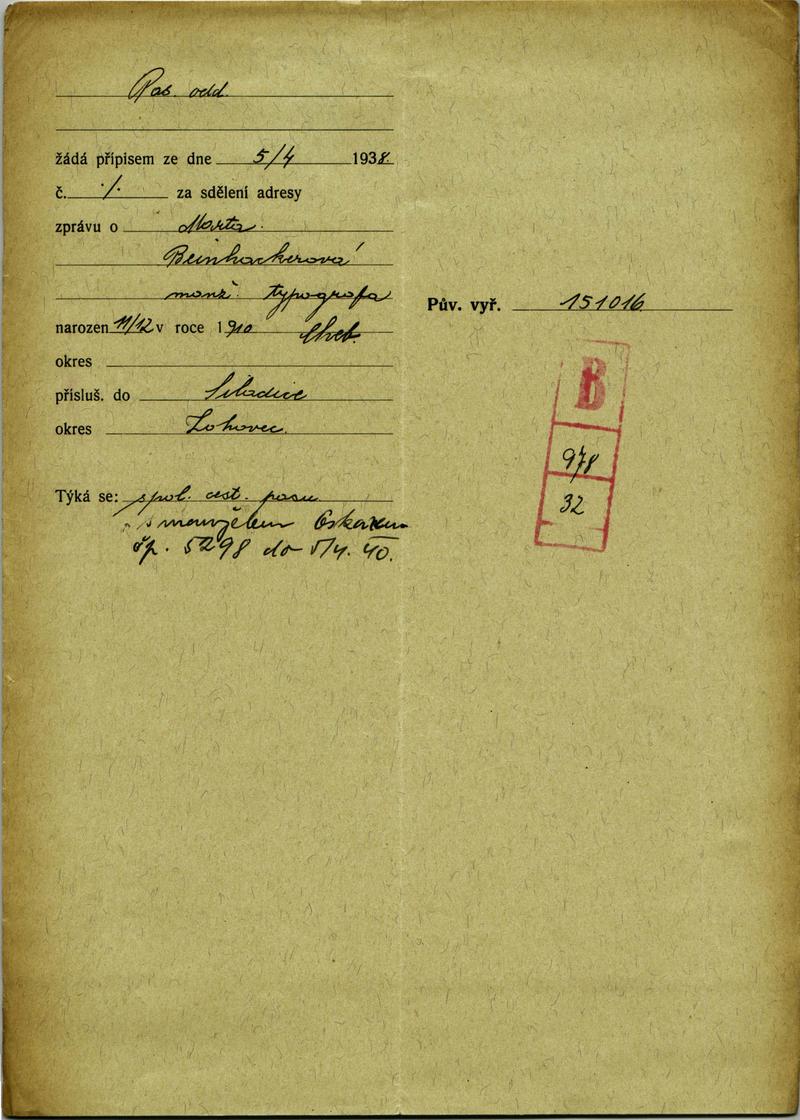 Pas. odd.
žádá přípisem ze dne 5/4 1938.
č. ·/· za sdělení adresy
zprávu o Marta
Beinhackerová
manž. typografa
narozen 11/12 v roce 1910 Cheb.
okres
přísluš. do
okres
Týká se: spol. cest. pasu
s manželem Oskarem
čp. 5298 do 5/4. 40.
Pův. vyř. 151016
B
978
32